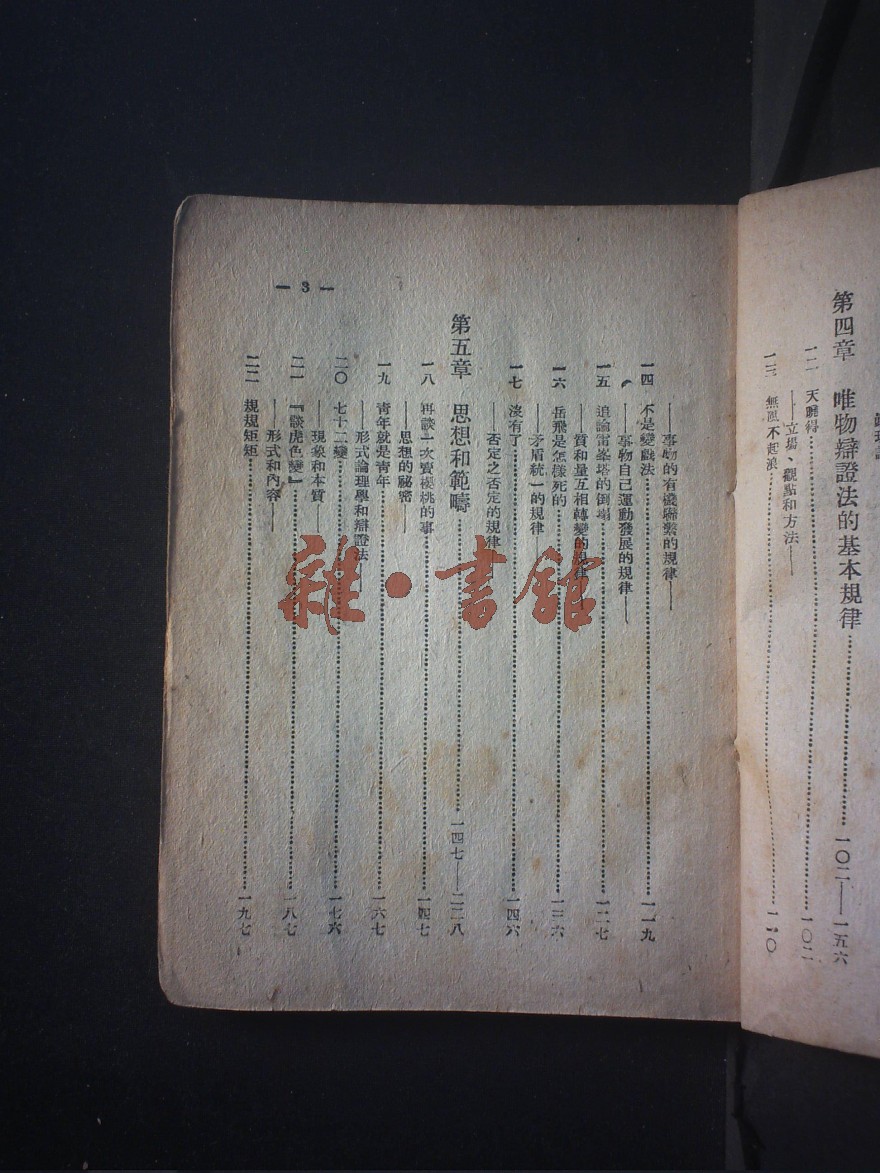 第四章 唯物辯證法的基本規律……一〇二——一五六
一二 天曉得……一〇二
——立場、觀點和方法——
一三 無風不起浪……一一〇
——事物的有機聯繫的規律——
一四 不是變戲法……一一九
——事物自己運動發展的規律——
一五 追論雷峯塔的倒塌……一二七
——質和量互相轉變的規律——
一六 岳飛是怎樣死的……一三六
——矛盾統一的規律
一七 沒有了……一四六
——否定之否定的規律
第五章 思想和範疇……一四七——二二八
一八 再談一次賣櫻桃的事……一四七
——思想的秘密——
一九 青年就是青年……一六七
——形式論理學和辯證法
二〇 七十二變……一七六
——現象和本質——
二一 『談虎色變』……一八七
——形式和內容——
二二 規規矩矩……一九七
— 3 —
雜·書館